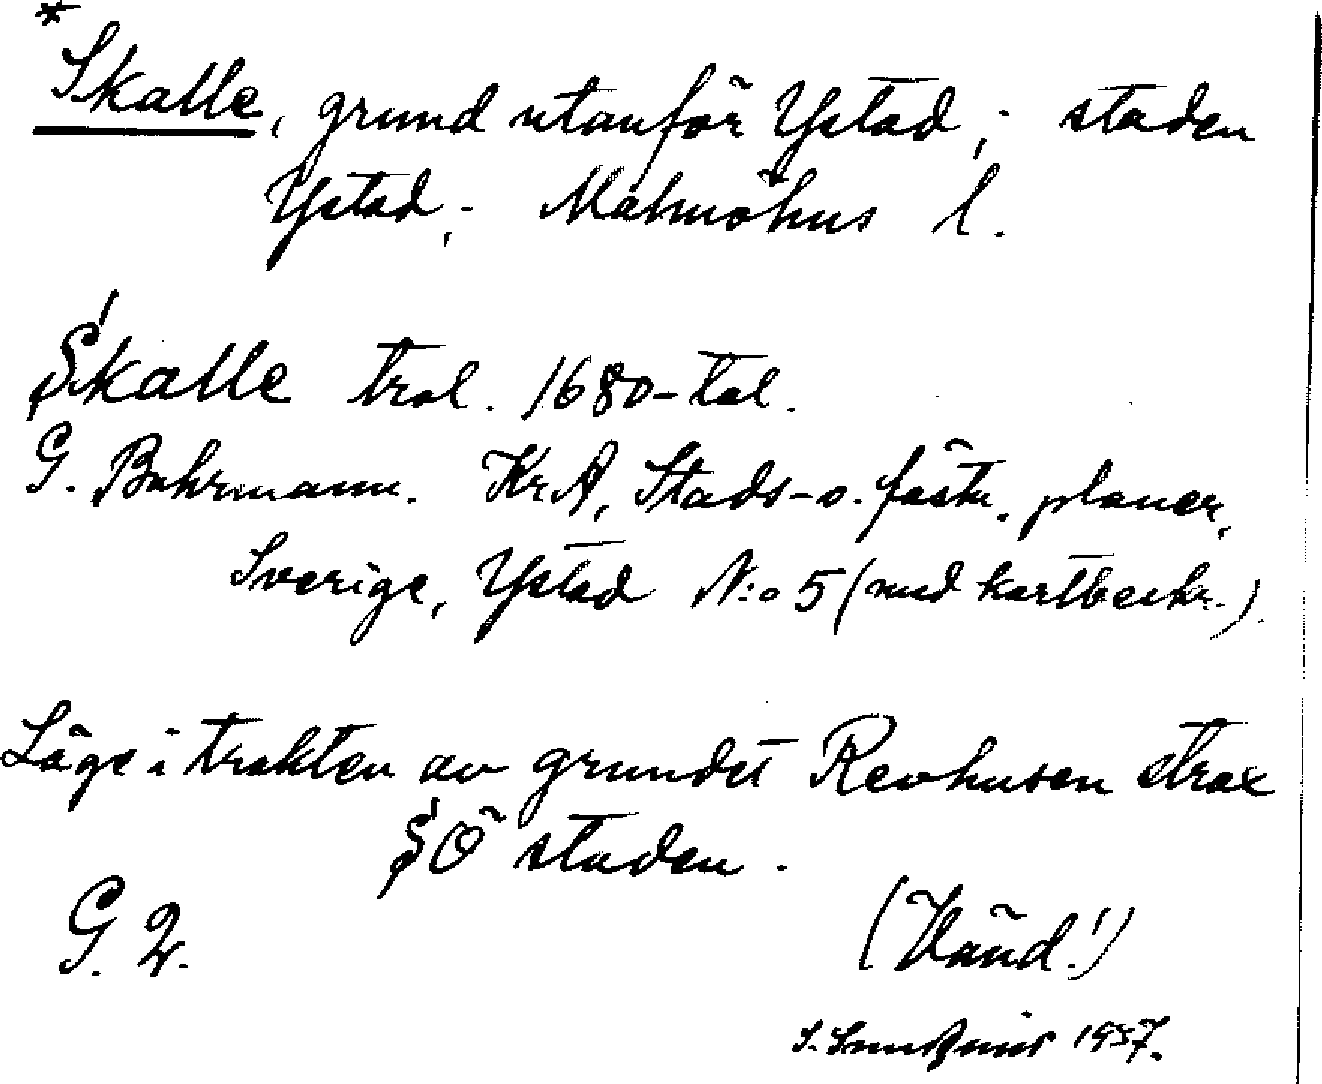 * Skalle, grund utanför Ystad; staden
Ystad; Malmöhus l.
Skalle trol. 1680-tal.
G. Buhrmann. KrA, Stads- o. fästn. planer,
Sverige, Ystad N:o 5 (med kartbeskr.).
Läge i trakten av grundet Revhusen strax
SÖ staden.
G. 2.
(Vänd!)
S. 1957.